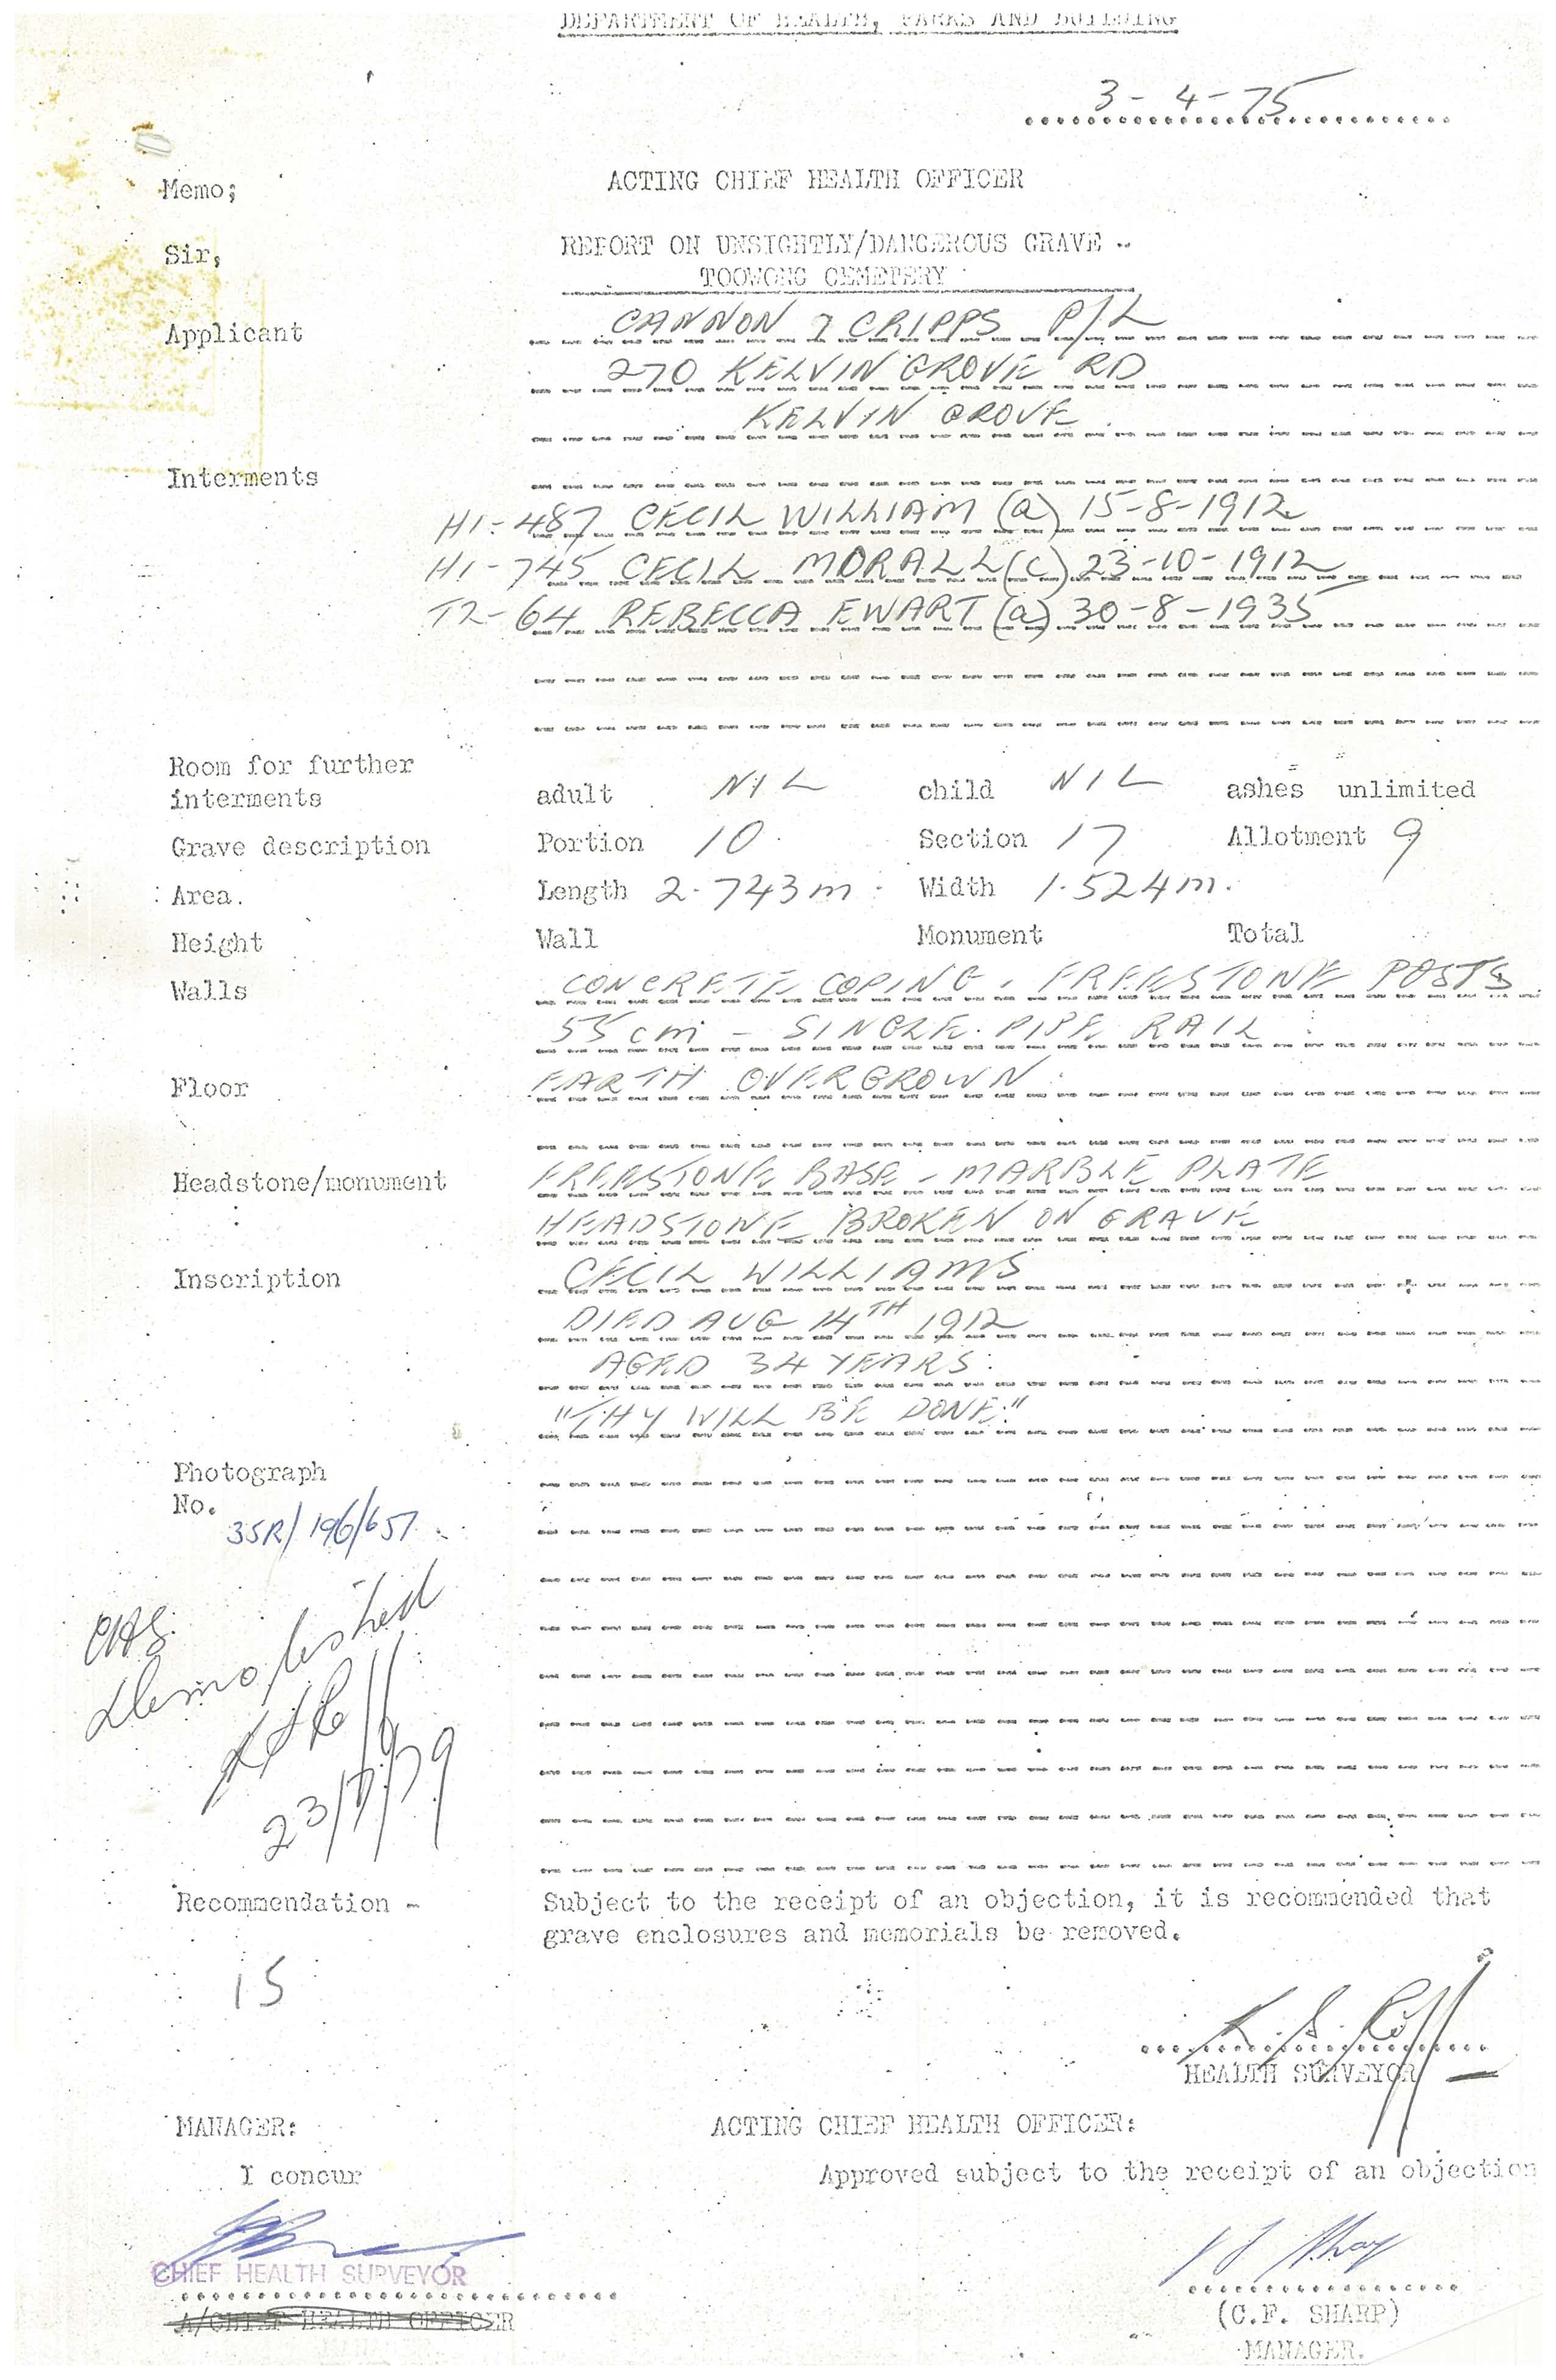 DEPARTMENT OF HEALTH, PARKS AND BUILDING
3-4-75
Memo; ACTING CHIEF HEALTH OFFICER
Sir, REPORT ON UNSIGHTLY/DANGEROUS GRAVE -
TOOWONG CEMETERY
Applicant CANNON & CRIPPS P/L
270 KELVIN GROVE RD
KELVIN GROVE.
Interments
H1-487 CECIL WILLIAM (a) 15-8-1912
H1-745 CECIL MORALL (c) 23-10-1912
T2-64 REBECCA EWART (a) 30-8-1935
Room for further
interments adult NIL child NIL ashes unlimited
Grave description Portion 10 Section 17 Allotment 9
Area. Length 2.743m. Width 1.524m.
Height Wall Monument Total
Walls CONCRETE COPING. FREESTONE POSTS
55cm - SINGLE PIPE RAIL
Floor EARTH OVERGROWN.
Headstone/monument FREESTONE BASE - MARBLE PLATE
HEADSTONE BROKEN ON GRAVE
Inscription CECIL WILLIAMS
DIED AUG 14TH 1912
AGED 34 YEARS.
"THY WILL BE DONE."
Photograph
No. 35R/196/657
Demolished
23/7/79
Recommendation - Subject to the receipt of an objection, it is recommended that
grave enclosures and memorials be removed.
15
HEALTH SURVEYOR
MANAGER: ACTING CHIEF HEALTH OFFICER:
I concur Approved subject to the receipt of an objection
CHIEF HEALTH SURVEYOR
A/CHIEF HEALTH OFFICER (C.F. SHARP)
MANAGER.